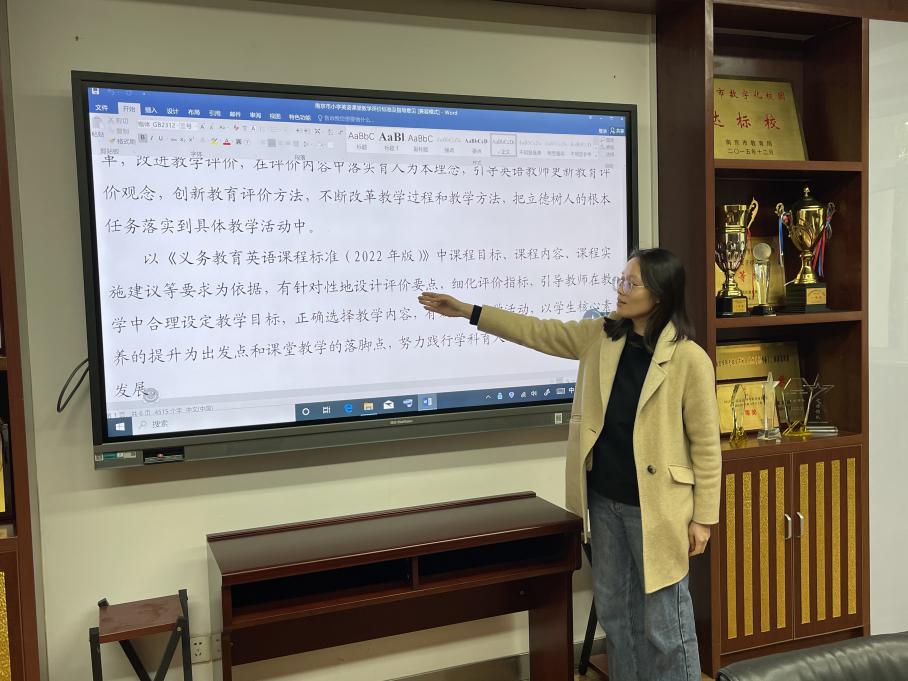 南京市小学英语课堂教学评价标准及指导意见 [兼容模式] - Word
文件 开始 插入 设计 布局 引用 邮件 审阅 视图 特色功能
共享
剪切
复制
格式刷
粘贴
剪贴板
GB2312
三号
AaBbC AaBl AaBbC
标题 标题 1 副标题
字体 段落 样式
革，改进教学评价，在评价内容中落实育人为本理念，引导英语教师更新教育评
价观念，创新教育评价方法，不断改革教学过程和教学方法，把立德树人的根本
任务落实到具体教学活动中。
以《义务教育英语课程标准（2022 年版）》中课程目标、课程内容、课程实
施建议等要求为依据，有针对性地设计评价要点，细化评价指标，引导教师在教
学中合理设定教学目标，正确选择教学内容，有 学活动，以学生核心素
养的提升为出发点和课堂教学的落脚点，努力践行学科育人
发展
共 6 页 4515 个字 中文(中国)
搜索
市数字化校园
达标校
南京市教育局
二〇一五年十二月